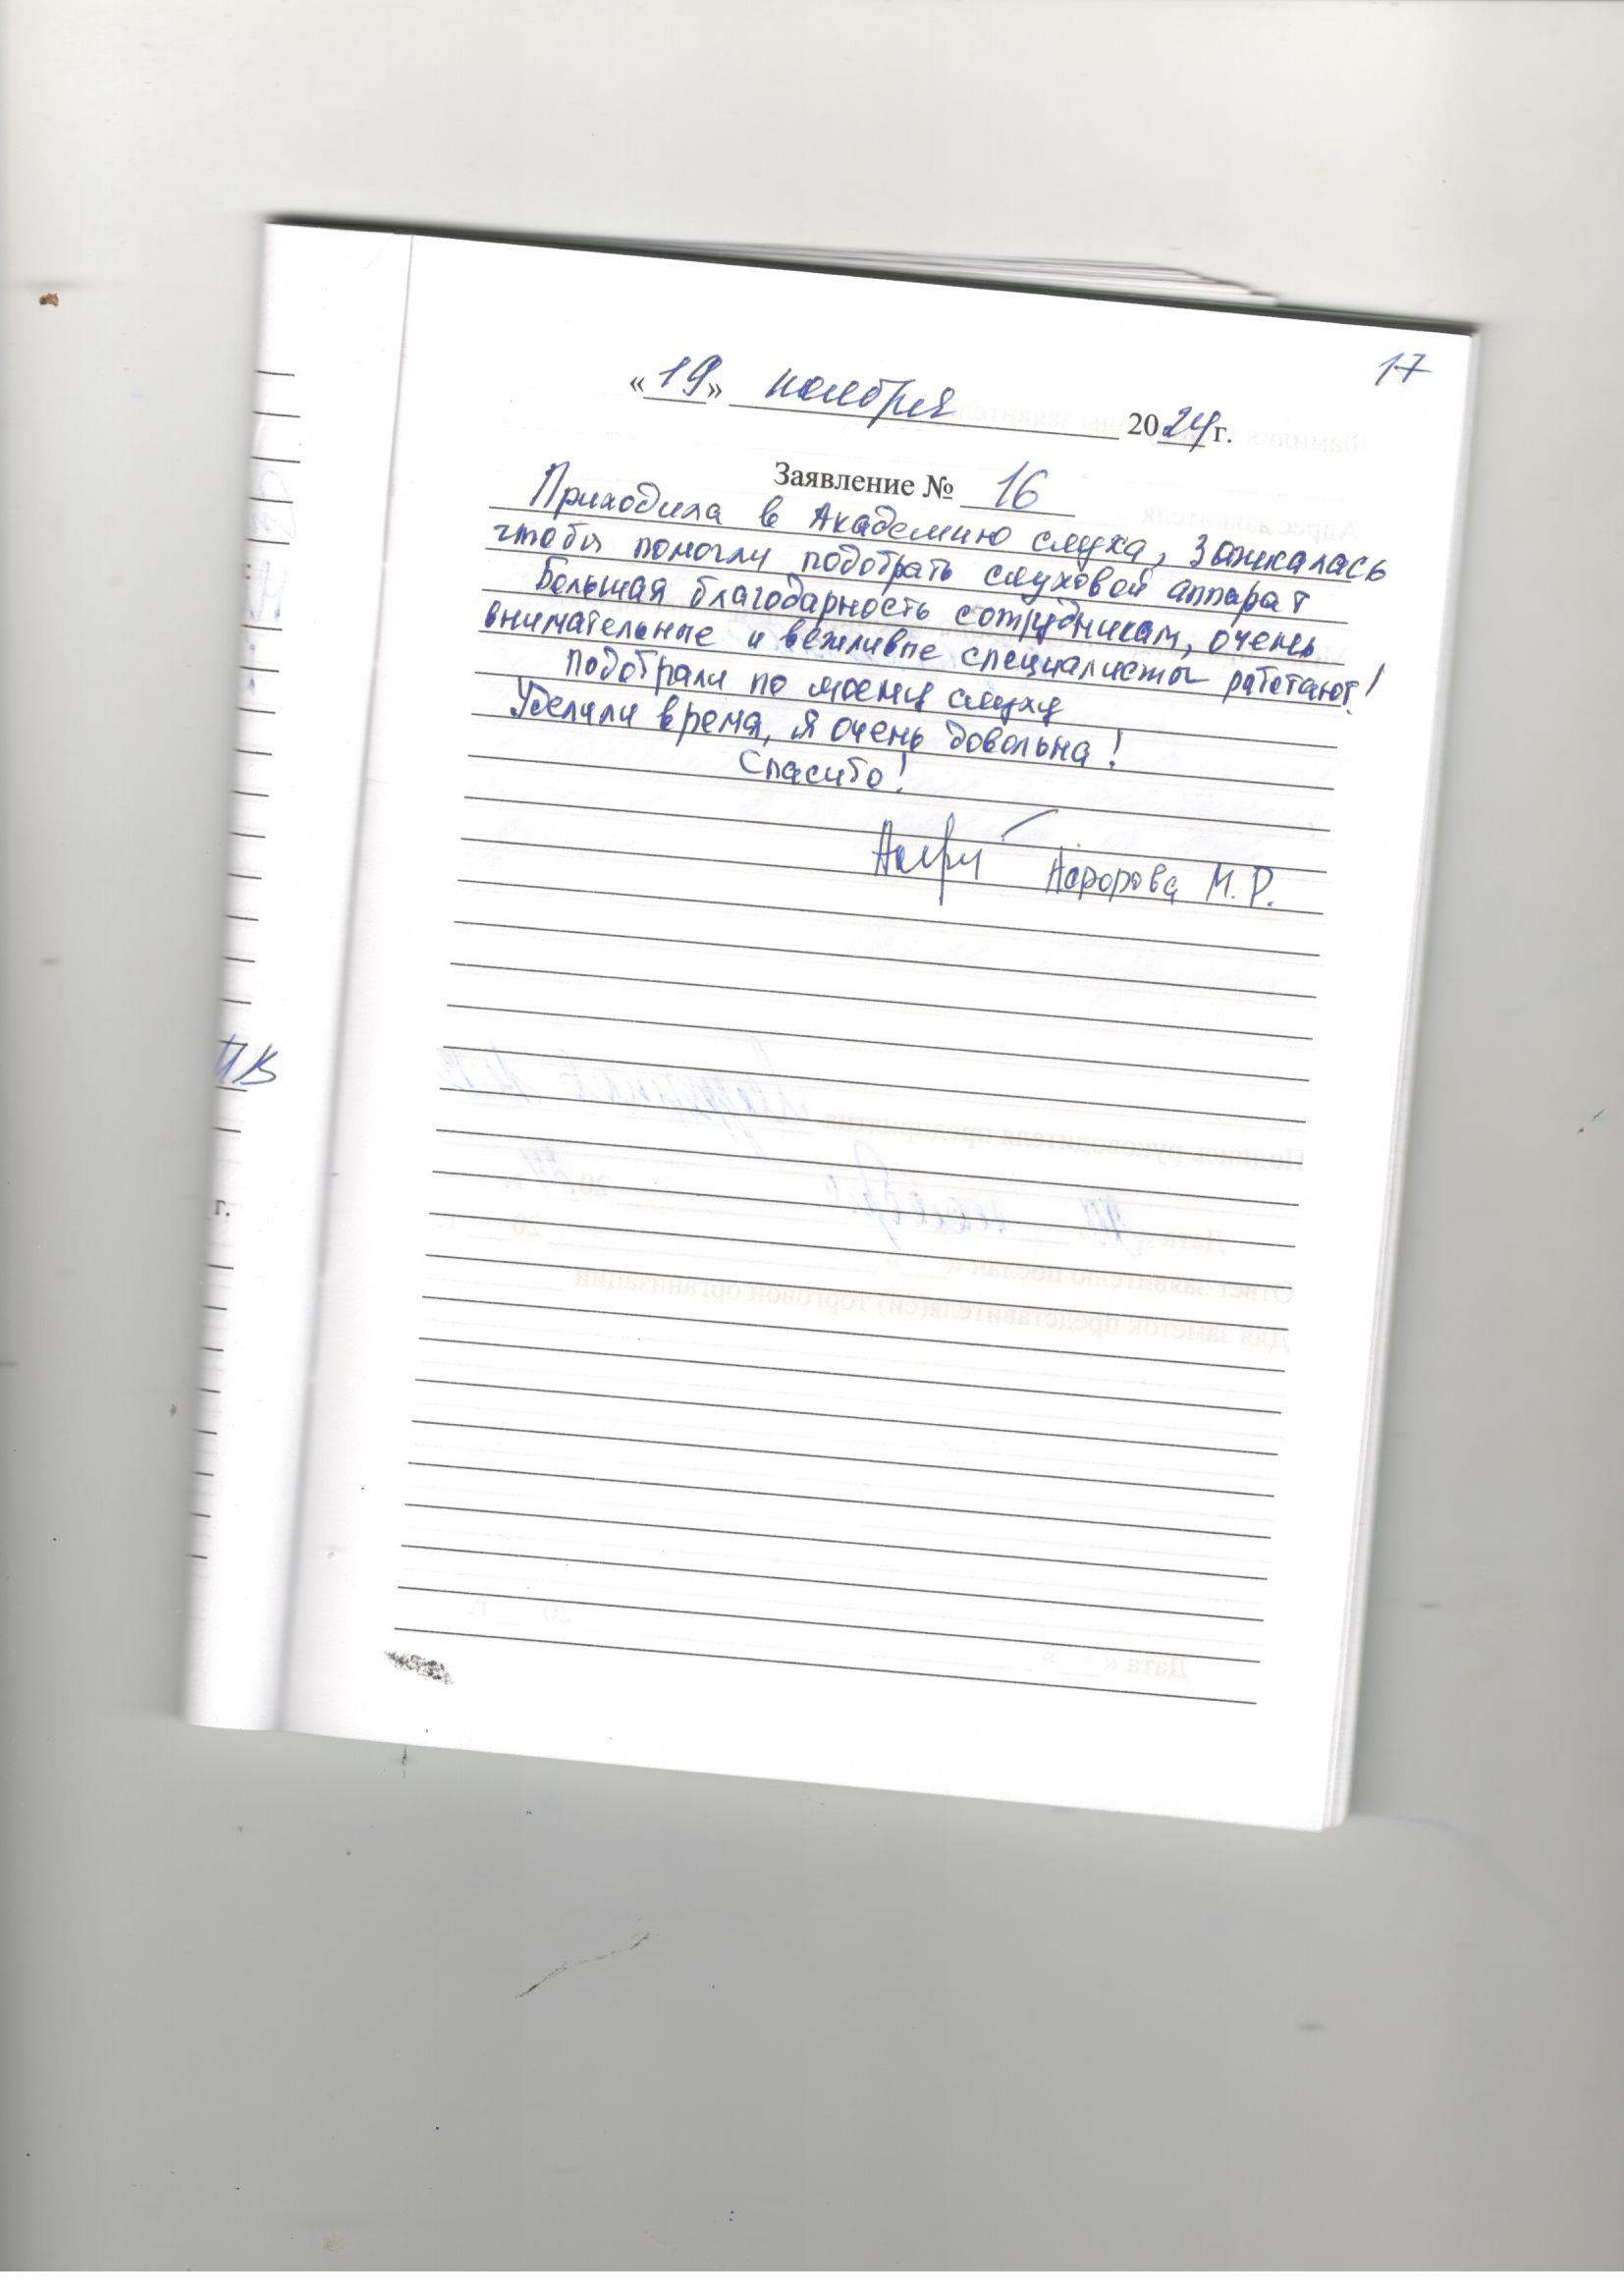 17
« 19 » ноября 2024 г.
Заявление № 16
Приходила в Академию слуха,
чтобы помогли подобрать слуховой аппарат
Большая благодарность сотрудникам, очень
внимательные и вежливые специалисты работают!
Подобрали по моему слуху
Уделили время, я очень довольна!
Спасибо!
М.Р.
г.